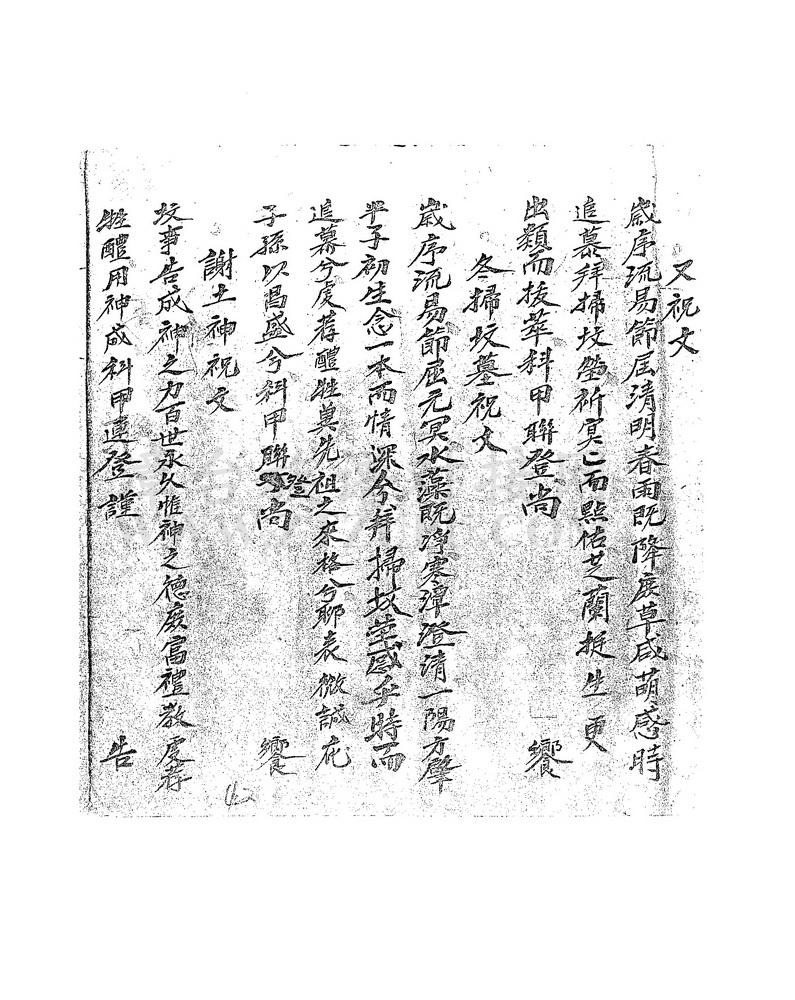 又祝文
歲序流易節屆清明春雨既降庶草咸萌感時
追慕拜掃坟塋祈冥〻而默佑芝蘭挺生更
出類而拔萃科甲聯登尚饗
冬掃坟墓祝文
歲序流易節屆元冥水藻既凈寒潭澄清一陽方肇
半子初生念一本而情深兮拜掃坟塋感乎時而
追慕兮虔荐醴牲奠先祖之來格兮聊表微誠庇
子孫以昌盛兮科甲聯登尚饗
謝土神祝文
坟事告成神之力百世永久惟神之德敢富禮教虔荐
牲醴用神成科甲連登謹告